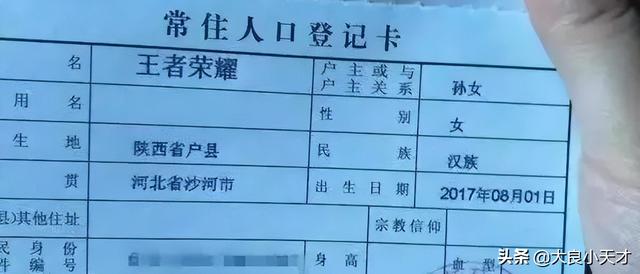 常住人口登记卡
名 王者荣耀 户主或与户主关系 孙女
用名 性别 女
生地 陕西省户县 民族 汉族
贯 河北省沙河市 出生日期 2017年08月01日
县)其他住址 宗教信仰
民身份
件编号 身高 血型
头条 @大良小天才